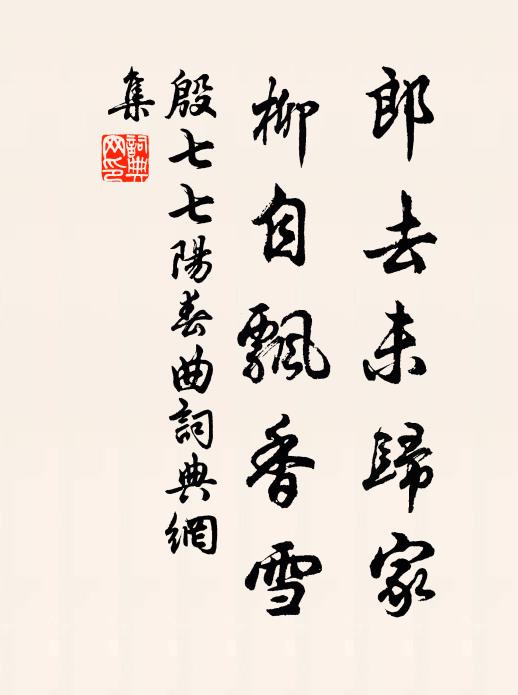 郎去未歸家
柳自飄香雪
殷七七陽春曲詞典網
集
詞典
网印